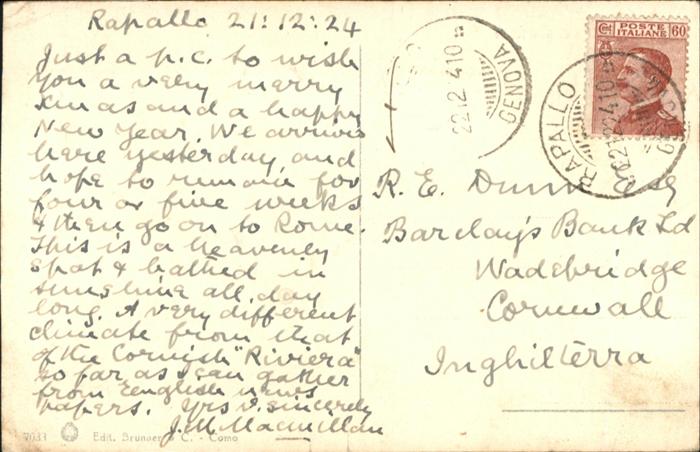 Rapallo 21:12:24
Just a p.c. to wish
you a very merry
Xmas and a happy
New Year. We arrived
here yesterday and
hope to remain for
four or five weeks
& then go on to Rome.
This is a heavenly
spot & bathed in
sunshine all day
long. A very different
climate from that
of the Cornish "Riviera"
so far as I can gather
from English news
papers. Yrs v. sincerely
J.M. Macmillan
7033 Edit. Brunner & C. - Como
GENOVA
22.12.24 10
POSTE
ITALIANE
Cent 60
RAPALLO
R. E. Dunn Esq
Barclay's Bank Ld
Wadebridge
Cornwall
Inghilterra